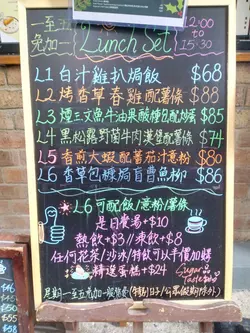 一至五
免加一
Lunch Set
12:00
to
15:30
L1 白汁雞扒焗飯 $68
L2 烤香草春雞配薯條 $88
L3 煙三文魚牛油果酸種包配炒蛋 $85
L4 黑松露野菌牛肉漢堡配薯條 $74
L5 香煎大蝦配蕃茄汁意粉 $80
L6 香草包糠焗盲曹魚柳 $86
L6 可配飯/意粉/薯條
是日餐湯+$10
熱飲+$3//凍飲+$8
任何花茶/沙冰/特飲可以半價加購
精選蛋糕+$24
Sugar
Taste
星期一至五免加一服務費(特別日子/公眾假期除外)
$46
$50
$55
$58